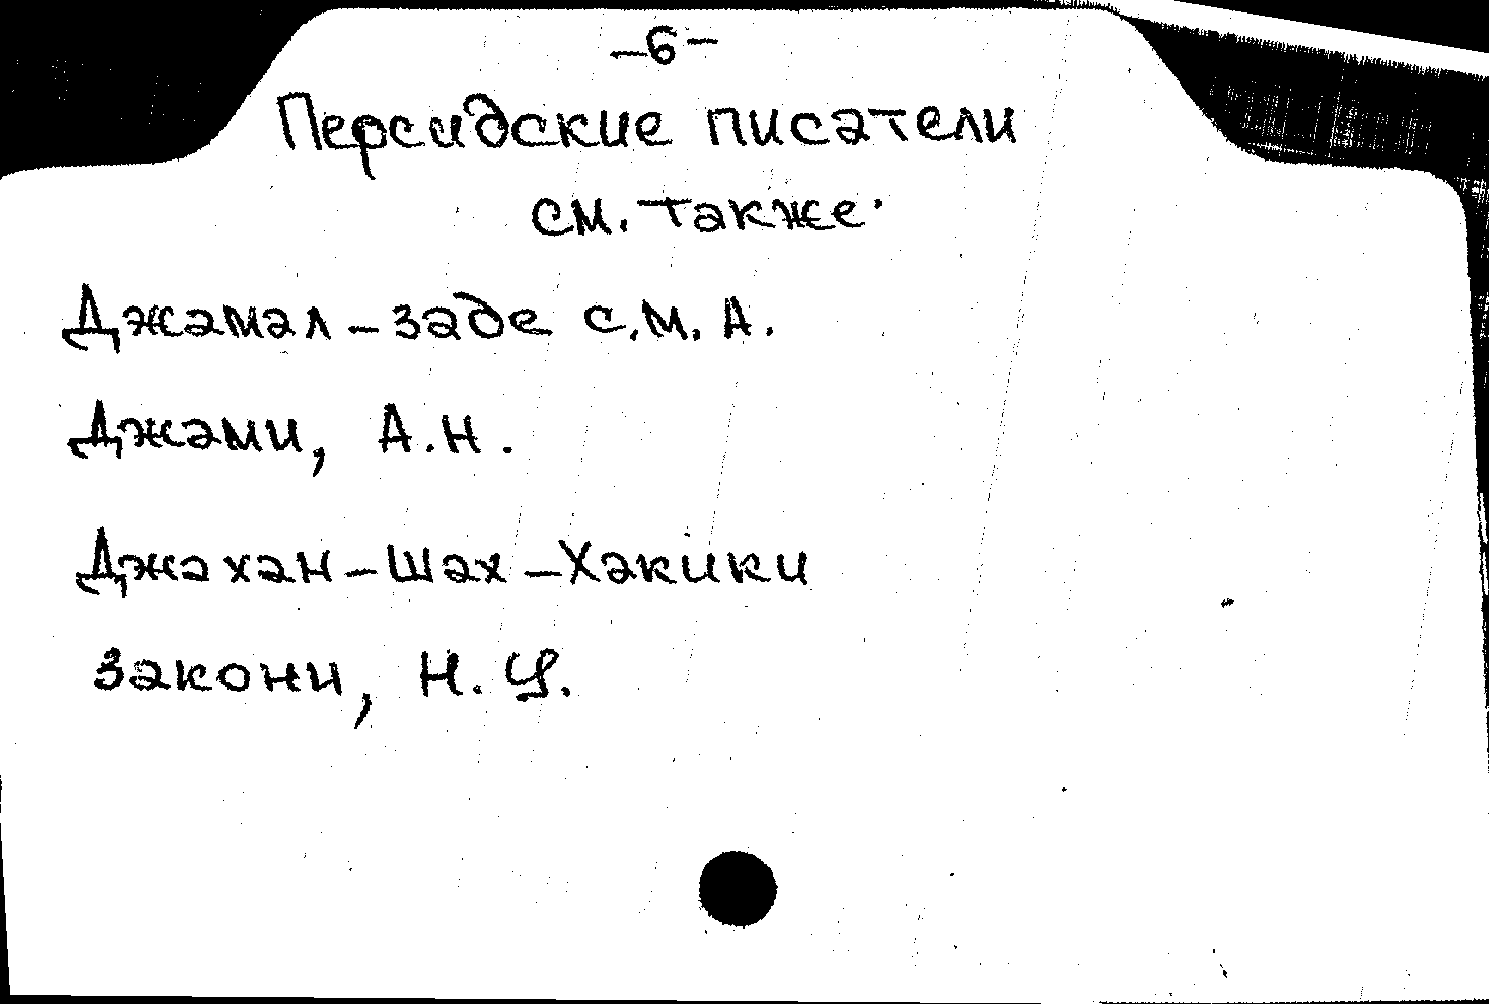 –6–
Персидские писатели
см. также·
Джамал–заде С.М.А.
Джами, А.Н.
Джахан–Шах–Хакики
Закони, Н.